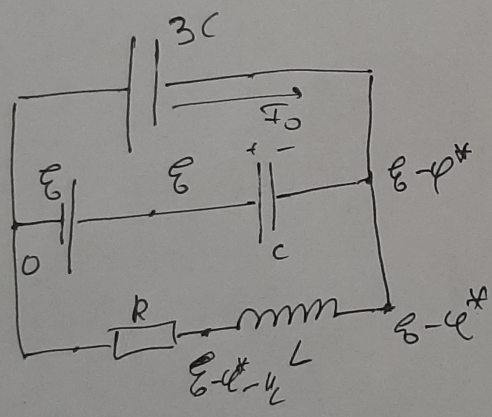 3C
I₀
ℰ ℰ + − ℰ-φ*
0 C
R L ℰ-φ*
ℰ-φ*-u_L